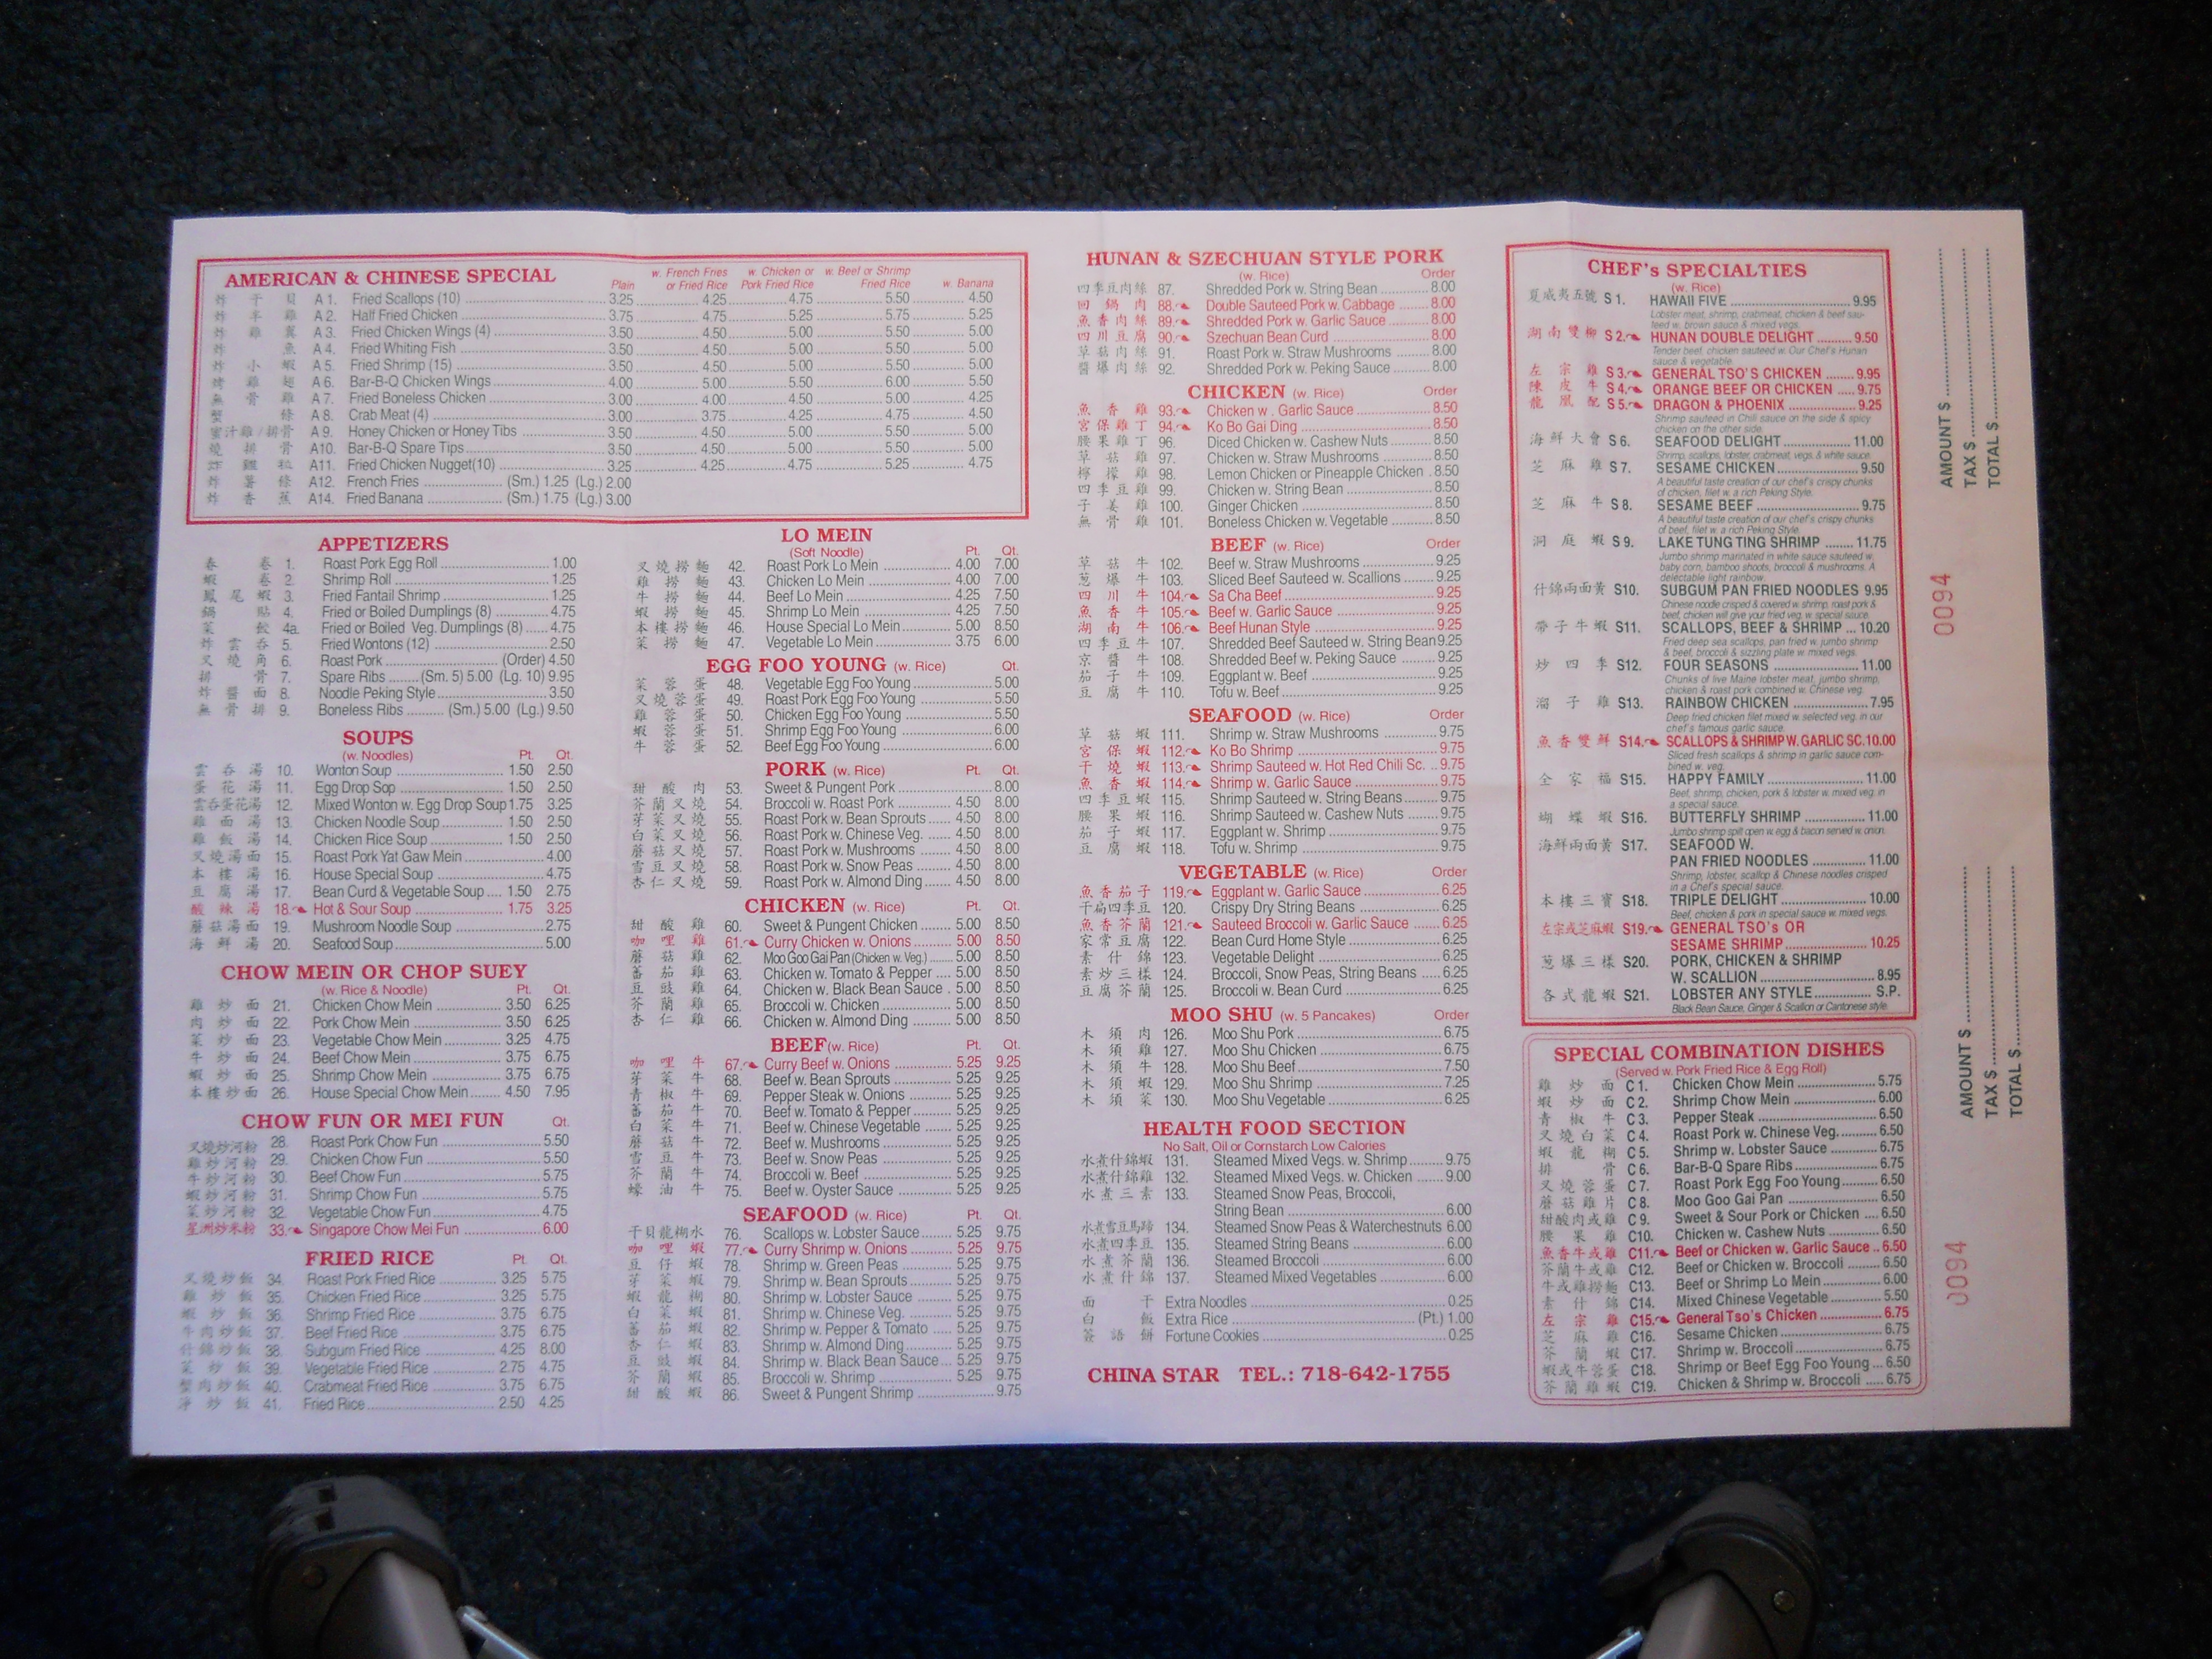 AMERICAN & CHINESE SPECIAL
Plain
w. French Fries or Fried Rice
w. Chicken or Pork Fried Rice
w. Beef or Shrimp Fried Rice
w. Banana
炸 干 貝 A 1. Fried Scallops (10) 3.25 4.25 4.75 5.50 4.50
炸 半 雞 A 2. Half Fried Chicken 3.75 4.75 5.25 5.75 5.25
炸 雞 翼 A 3. Fried Chicken Wings (4) 3.50 4.50 5.00 5.50 5.00
炸 魚 A 4. Fried Whiting Fish 3.50 4.50 5.00 5.50 5.00
炸 小 蝦 A 5. Fried Shrimp (15) 3.50 4.50 5.00 5.50 5.00
烤 雞 翅 A 6. Bar-B-Q Chicken Wings 4.00 5.00 5.50 6.00 5.50
無 骨 雞 A 7. Fried Boneless Chicken 3.00 4.00 4.50 5.00 4.25
蟹 條 A 8. Crab Meat (4) 3.00 3.75 4.25 4.75 4.50
蜜汁雞/排骨 A 9. Honey Chicken or Honey Tibs 3.50 4.50 5.00 5.50 5.00
燒 排 骨 A10. Bar-B-Q Spare Tips 3.50 4.50 5.00 5.50 5.00
炸 雞 粒 A11. Fried Chicken Nugget(10) 3.25 4.25 4.75 5.25 4.75
炸 薯 條 A12. French Fries (Sm.) 1.25 (Lg.) 2.00
炸 香 蕉 A14. Fried Banana (Sm.) 1.75 (Lg.) 3.00
APPETIZERS
春 卷 1. Roast Pork Egg Roll 1.00
蝦 卷 2. Shrimp Roll 1.25
鳳 尾 蝦 3. Fried Fantail Shrimp 1.25
鍋 貼 4. Fried or Boiled Dumplings (8) 4.75
菜 餃 4a. Fried or Boiled Veg. Dumplings (8) 4.75
炸 雲 吞 5. Fried Wontons (12) 2.50
叉 燒 角 6. Roast Pork (Order) 4.50
排 骨 7. Spare Ribs (Sm. 5) 5.00 (Lg. 10) 9.95
炸 醬 面 8. Noodle Peking Style 3.50
無 骨 排 9. Boneless Ribs (Sm.) 5.00 (Lg.) 9.50
SOUPS
(w. Noodles) Pt. Qt.
雲 吞 湯 10. Wonton Soup 1.50 2.50
蛋 花 湯 11. Egg Drop Sop 1.50 2.50
雲吞蛋花湯 12. Mixed Wonton w. Egg Drop Soup 1.75 3.25
雞 面 湯 13. Chicken Noodle Soup 1.50 2.50
雞 飯 湯 14. Chicken Rice Soup 1.50 2.50
叉燒湯面 15. Roast Pork Yat Gaw Mein 4.00
本 樓 湯 16. House Special Soup 4.75
豆 腐 湯 17. Bean Curd & Vegetable Soup 1.50 2.75
酸 辣 湯 18. Hot & Sour Soup 1.75 3.25
蘑菇湯面 19. Mushroom Noodle Soup 2.75
海 鮮 湯 20. Seafood Soup 5.00
CHOW MEIN OR CHOP SUEY
(w. Rice & Noodle) Pt. Qt.
雞 炒 面 21. Chicken Chow Mein 3.50 6.25
肉 炒 面 22. Pork Chow Mein 3.50 6.25
菜 炒 面 23. Vegetable Chow Mein 3.25 4.75
牛 炒 面 24. Beef Chow Mein 3.75 6.75
蝦 炒 面 25. Shrimp Chow Mein 3.75 6.75
本樓炒面 26. House Special Chow Mein 4.50 7.95
CHOW FUN OR MEI FUN Qt.
叉燒炒河粉 28. Roast Pork Chow Fun 5.50
雞炒河粉 29. Chicken Chow Fun 5.50
牛炒河粉 30. Beef Chow Fun 5.75
蝦炒河粉 31. Shrimp Chow Fun 5.75
菜炒河粉 32. Vegetable Chow Fun 4.75
星洲炒米粉 33. Singapore Chow Mei Fun 6.00
FRIED RICE Pt. Qt.
叉燒炒飯 34. Roast Pork Fried Rice 3.25 5.75
雞 炒 飯 35. Chicken Fried Rice 3.25 5.75
蝦 炒 飯 36. Shrimp Fried Rice 3.75 6.75
牛肉炒飯 37. Beef Fried Rice 3.75 6.75
什錦炒飯 38. Subgum Fried Rice 4.25 8.00
菜 炒 飯 39. Vegetable Fried Rice 2.75 4.75
蟹肉炒飯 40. Crabmeat Fried Rice 3.75 6.75
淨 炒 飯 41. Fried Rice 2.50 4.25
LO MEIN
(Soft Noodle) Pt. Qt.
叉燒撈麵 42. Roast Pork Lo Mein 4.00 7.00
雞 撈 麵 43. Chicken Lo Mein 4.00 7.00
牛 撈 麵 44. Beef Lo Mein 4.25 7.50
蝦 撈 麵 45. Shrimp Lo Mein 4.25 7.50
本樓撈麵 46. House Special Lo Mein 5.00 8.50
菜 撈 麵 47. Vegetable Lo Mein 3.75 6.00
EGG FOO YOUNG (w. Rice) Qt.
菜 蓉 蛋 48. Vegetable Egg Foo Young 5.00
叉燒蓉蛋 49. Roast Pork Egg Foo Young 5.50
雞 蓉 蛋 50. Chicken Egg Foo Young 5.50
蝦 蓉 蛋 51. Shrimp Egg Foo Young 6.00
牛 蓉 蛋 52. Beef Egg Foo Young 6.00
PORK (w. Rice) Pt. Qt.
甜 酸 肉 53. Sweet & Pungent Pork 8.00
芥蘭叉燒 54. Broccoli w. Roast Pork 4.50 8.00
芽菜叉燒 55. Roast Pork w. Bean Sprouts 4.50 8.00
白菜叉燒 56. Roast Pork w. Chinese Veg. 4.50 8.00
蘑菇叉燒 57. Roast Pork w. Mushrooms 4.50 8.00
雪豆叉燒 58. Roast Pork w. Snow Peas 4.50 8.00
杏仁叉燒 59. Roast Pork w. Almond Ding 4.50 8.00
CHICKEN (w. Rice) Pt. Qt.
甜 酸 雞 60. Sweet & Pungent Chicken 5.00 8.50
咖 哩 雞 61. Curry Chicken w. Onions 5.00 8.50
蘑 菇 雞 62. Moo Goo Gai Pan (Chicken w. Veg.) 5.00 8.50
蕃 茄 雞 63. Chicken w. Tomato & Pepper 5.00 8.50
豆 豉 雞 64. Chicken w. Black Bean Sauce 5.00 8.50
芥 蘭 雞 65. Broccoli w. Chicken 5.00 8.50
杏 仁 雞 66. Chicken w. Almond Ding 5.00 8.50
BEEF (w. Rice) Pt. Qt.
咖 哩 牛 67. Curry Beef w. Onions 5.25 9.25
芽 菜 牛 68. Beef w. Bean Sprouts 5.25 9.25
青 椒 牛 69. Pepper Steak w. Onions 5.25 9.25
蕃 茄 牛 70. Beef w. Tomato & Pepper 5.25 9.25
白 菜 牛 71. Beef w. Chinese Vegetable 5.25 9.25
蘑 菇 牛 72. Beef w. Mushrooms 5.25 9.25
雪 豆 牛 73. Beef w. Snow Peas 5.25 9.25
芥 蘭 牛 74. Broccoli w. Beef 5.25 9.25
蠔 油 牛 75. Beef w. Oyster Sauce 5.25 9.25
SEAFOOD (w. Rice) Pt. Qt.
干貝龍糊水 76. Scallops w. Lobster Sauce 5.25 9.75
咖 哩 蝦 77. Curry Shrimp w. Onions 5.25 9.75
豆 仔 蝦 78. Shrimp w. Green Peas 5.25 9.75
芽 菜 蝦 79. Shrimp w. Bean Sprouts 5.25 9.75
蝦 龍 糊 80. Shrimp w. Lobster Sauce 5.25 9.75
白 菜 蝦 81. Shrimp w. Chinese Veg. 5.25 9.75
蕃 茄 蝦 82. Shrimp w. Pepper & Tomato 5.25 9.75
杏 仁 蝦 83. Shrimp w. Almond Ding 5.25 9.75
豆 豉 蝦 84. Shrimp w. Black Bean Sauce 5.25 9.75
芥 蘭 蝦 85. Broccoli w. Shrimp 5.25 9.75
甜 酸 蝦 86. Sweet & Pungent Shrimp 9.75
HUNAN & SZECHUAN STYLE PORK
(w. Rice) Order
四季豆肉絲 87. Shredded Pork w. String Bean 8.00
回 鍋 肉 88. Double Sauteed Pork w. Cabbage 8.00
魚香肉絲 89. Shredded Pork w. Garlic Sauce 8.00
四川豆腐 90. Szechuan Bean Curd 8.00
草菇肉絲 91. Roast Pork w. Straw Mushrooms 8.00
醬爆肉絲 92. Shredded Pork w. Peking Sauce 8.00
CHICKEN (w. Rice) Order
魚 香 雞 93. Chicken w . Garlic Sauce 8.50
宮保雞丁 94. Ko Bo Gai Ding 8.50
腰果雞丁 96. Diced Chicken w. Cashew Nuts 8.50
草 菇 雞 97. Chicken w. Straw Mushrooms 8.50
檸 檬 雞 98. Lemon Chicken or Pineapple Chicken 8.50
四季豆雞 99. Chicken w. String Bean 8.50
子 姜 雞 100. Ginger Chicken 8.50
無 骨 雞 101. Boneless Chicken w. Vegetable 8.50
BEEF (w. Rice) Order
草 菇 牛 102. Beef w. Straw Mushrooms 9.25
蔥 爆 牛 103. Sliced Beef Sauteed w. Scallions 9.25
四 川 牛 104. Sa Cha Beef 9.25
魚 香 牛 105. Beef w. Garlic Sauce 9.25
湖 南 牛 106. Beef Hunan Style 9.25
四季豆牛 107. Shredded Beef Sauteed w. String Bean 9.25
京 醬 牛 108. Shredded Beef w. Peking Sauce 9.25
茄 子 牛 109. Eggplant w. Beef 9.25
豆 腐 牛 110. Tofu w. Beef 9.25
SEAFOOD (w. Rice) Order
草 菇 蝦 111. Shrimp w. Straw Mushrooms 9.75
宮 保 蝦 112. Ko Bo Shrimp 9.75
干 燒 蝦 113. Shrimp Sauteed w. Hot Red Chili Sc. 9.75
魚 香 蝦 114. Shrimp w. Garlic Sauce 9.75
四季豆蝦 115. Shrimp Sauteed w. String Beans 9.75
腰 果 蝦 116. Shrimp Sauteed w. Cashew Nuts 9.75
茄 子 蝦 117. Eggplant w. Shrimp 9.75
豆 腐 蝦 118. Tofu w. Shrimp 9.75
VEGETABLE (w. Rice) Order
魚香茄子 119. Eggplant w. Garlic Sauce 6.25
干扁四季豆 120. Crispy Dry String Beans 6.25
魚香芥蘭 121. Sauteed Broccoli w. Garlic Sauce 6.25
家常豆腐 122. Bean Curd Home Style 6.25
素 什 錦 123. Vegetable Delight 6.25
素炒三樣 124. Broccoli, Snow Peas, String Beans 6.25
豆腐芥蘭 125. Broccoli w. Bean Curd 6.25
MOO SHU (w. 5 Pancakes) Order
木 須 肉 126. Moo Shu Pork 6.75
木 須 雞 127. Moo Shu Chicken 6.75
木 須 牛 128. Moo Shu Beef 7.50
木 須 蝦 129. Moo Shu Shrimp 7.25
木 須 菜 130. Moo Shu Vegetable 6.25
HEALTH FOOD SECTION
No Salt, Oil or Cornstarch Low Calories
水煮什錦蝦 131. Steamed Mixed Vegs. w. Shrimp 9.75
水煮什錦雞 132. Steamed Mixed Vegs. w. Chicken 9.00
水煮三素 133. Steamed Snow Peas, Broccoli,
String Bean 6.00
水煮雪豆馬蹄 134. Steamed Snow Peas & Waterchestnuts 6.00
水煮四季豆 135. Steamed String Beans 6.00
水煮芥蘭 136. Steamed Broccoli 6.00
水煮什錦 137. Steamed Mixed Vegetables 6.00
面 干 Extra Noodles 0.25
白 飯 Extra Rice (Pt.) 1.00
簽 語 餅 Fortune Cookies 0.25
CHINA STAR TEL.: 718-642-1755
CHEF's SPECIALTIES
(w. Rice)
夏威夷五號 S 1. HAWAII FIVE 9.95
Lobster meat, shrimp, crabmeat, chicken & beef sau-
teed w. brown sauce & mixed vegs.
湖南雙柳 S 2. HUNAN DOUBLE DELIGHT 9.50
Tender beef, chicken sauteed w. Our Chef's Hunan
sauce & vegetable.
左 宗 雞 S 3. GENERAL TSO'S CHICKEN 9.95
陳 皮 牛 S 4. ORANGE BEEF OR CHICKEN 9.75
龍 凰 配 S 5. DRAGON & PHOENIX 9.25
Shrimp sauteed in Chili sauce on the side & spicy
chicken on the other side.
海鮮大會 S 6. SEAFOOD DELIGHT 11.00
Shrimp, scallops, lobster, crabmeat, vegs. & white sauce.
芝 麻 雞 S 7. SESAME CHICKEN 9.50
A beautiful taste creation of our chef's crispy chunks
of chicken, filet w. a rich Peking Style.
芝 麻 牛 S 8. SESAME BEEF 9.75
A beautiful taste creation of our chef's crispy chunks
of beef, filet w. a rich Peking Style.
洞 庭 蝦 S 9. LAKE TUNG TING SHRIMP 11.75
Jumbo shrimp marinated in white sauce sauteed w.
baby corn, bamboo shoots, broccoli & mushrooms. A
delectable light rainbow.
什錦兩面黃 S10. SUBGUM PAN FRIED NOODLES 9.95
Chinese noodle crisped & covered w. shrimp, roast pork &
beef, chicken will give your fried veg. w. special sauce.
帶子牛蝦 S11. SCALLOPS, BEEF & SHRIMP 10.20
Fried deep sea scallops, pan fried w. jumbo shrimp
& beef, broccoli & sizzling plate w. mixed vegs.
炒 四 季 S12. FOUR SEASONS 11.00
Chunks of live Maine lobster meat, jumbo shrimp,
chicken & roast pork combined w. Chinese veg.
溜 子 雞 S13. RAINBOW CHICKEN 7.95
Deep fried chicken filet mixed w. selected veg. in our
chef's famous garlic sauce.
魚香雙鮮 S14. SCALLOPS & SHRIMP W. GARLIC SC. 10.00
Sliced fresh scallops & shrimp in garlic sauce com-
bined w. veg.
全 家 福 S15. HAPPY FAMILY 11.00
Beef, shrimp, chicken, pork & lobster w. mixed veg. in
a special sauce.
蝴 蝶 蝦 S16. BUTTERFLY SHRIMP 11.00
Jumbo shrimp split open w. egg & bacon served w. onion.
海鮮兩面黃 S17. SEAFOOD W.
PAN FRIED NOODLES 11.00
Shrimp, lobster, scallop & Chinese noodles crisped
in a Chef's special sauce.
本樓三寶 S18. TRIPLE DELIGHT 10.00
Beef, chicken & pork in special sauce w. mixed vegs.
左宗或芝麻蝦 S19. GENERAL TSO's OR
SESAME SHRIMP 10.25
蔥爆三樣 S20. PORK, CHICKEN & SHRIMP
W. SCALLION 8.95
各式龍蝦 S21. LOBSTER ANY STYLE S.P.
Black Bean Sauce, Ginger & Scallion or Cantonese style.
SPECIAL COMBINATION DISHES
(Served w. Pork Fried Rice & Egg Roll)
雞 炒 面 C 1. Chicken Chow Mein 5.75
蝦 炒 面 C 2. Shrimp Chow Mein 6.00
青 椒 牛 C 3. Pepper Steak 6.50
叉燒白菜 C 4. Roast Pork w. Chinese Veg. 6.50
蝦 龍 糊 C 5. Shrimp w. Lobster Sauce 6.75
排 骨 C 6. Bar-B-Q Spare Ribs 6.75
叉燒蓉蛋 C 7. Roast Pork Egg Foo Young 6.50
蘑菇雞片 C 8. Moo Goo Gai Pan 6.50
甜酸肉或雞 C 9. Sweet & Sour Pork or Chicken 6.50
腰 果 雞 C10. Chicken w. Cashew Nuts 6.50
魚香牛或雞 C11. Beef or Chicken w. Garlic Sauce 6.50
芥蘭牛或雞 C12. Beef or Chicken w. Broccoli 6.50
牛或雞撈麵 C13. Beef or Shrimp Lo Mein 6.00
素 什 錦 C14. Mixed Chinese Vegetable 5.50
左 宗 雞 C15. General Tso's Chicken 6.75
芝 麻 雞 C16. Sesame Chicken 6.75
芥 蘭 蝦 C17. Shrimp w. Broccoli 6.75
蝦或牛蓉蛋 C18. Shrimp or Beef Egg Foo Young 6.50
芥蘭雞蝦 C19. Chicken & Shrimp w. Broccoli 6.75
AMOUNT $
TAX $
TOTAL $
0094
AMOUNT $
TAX $
TOTAL $
0094